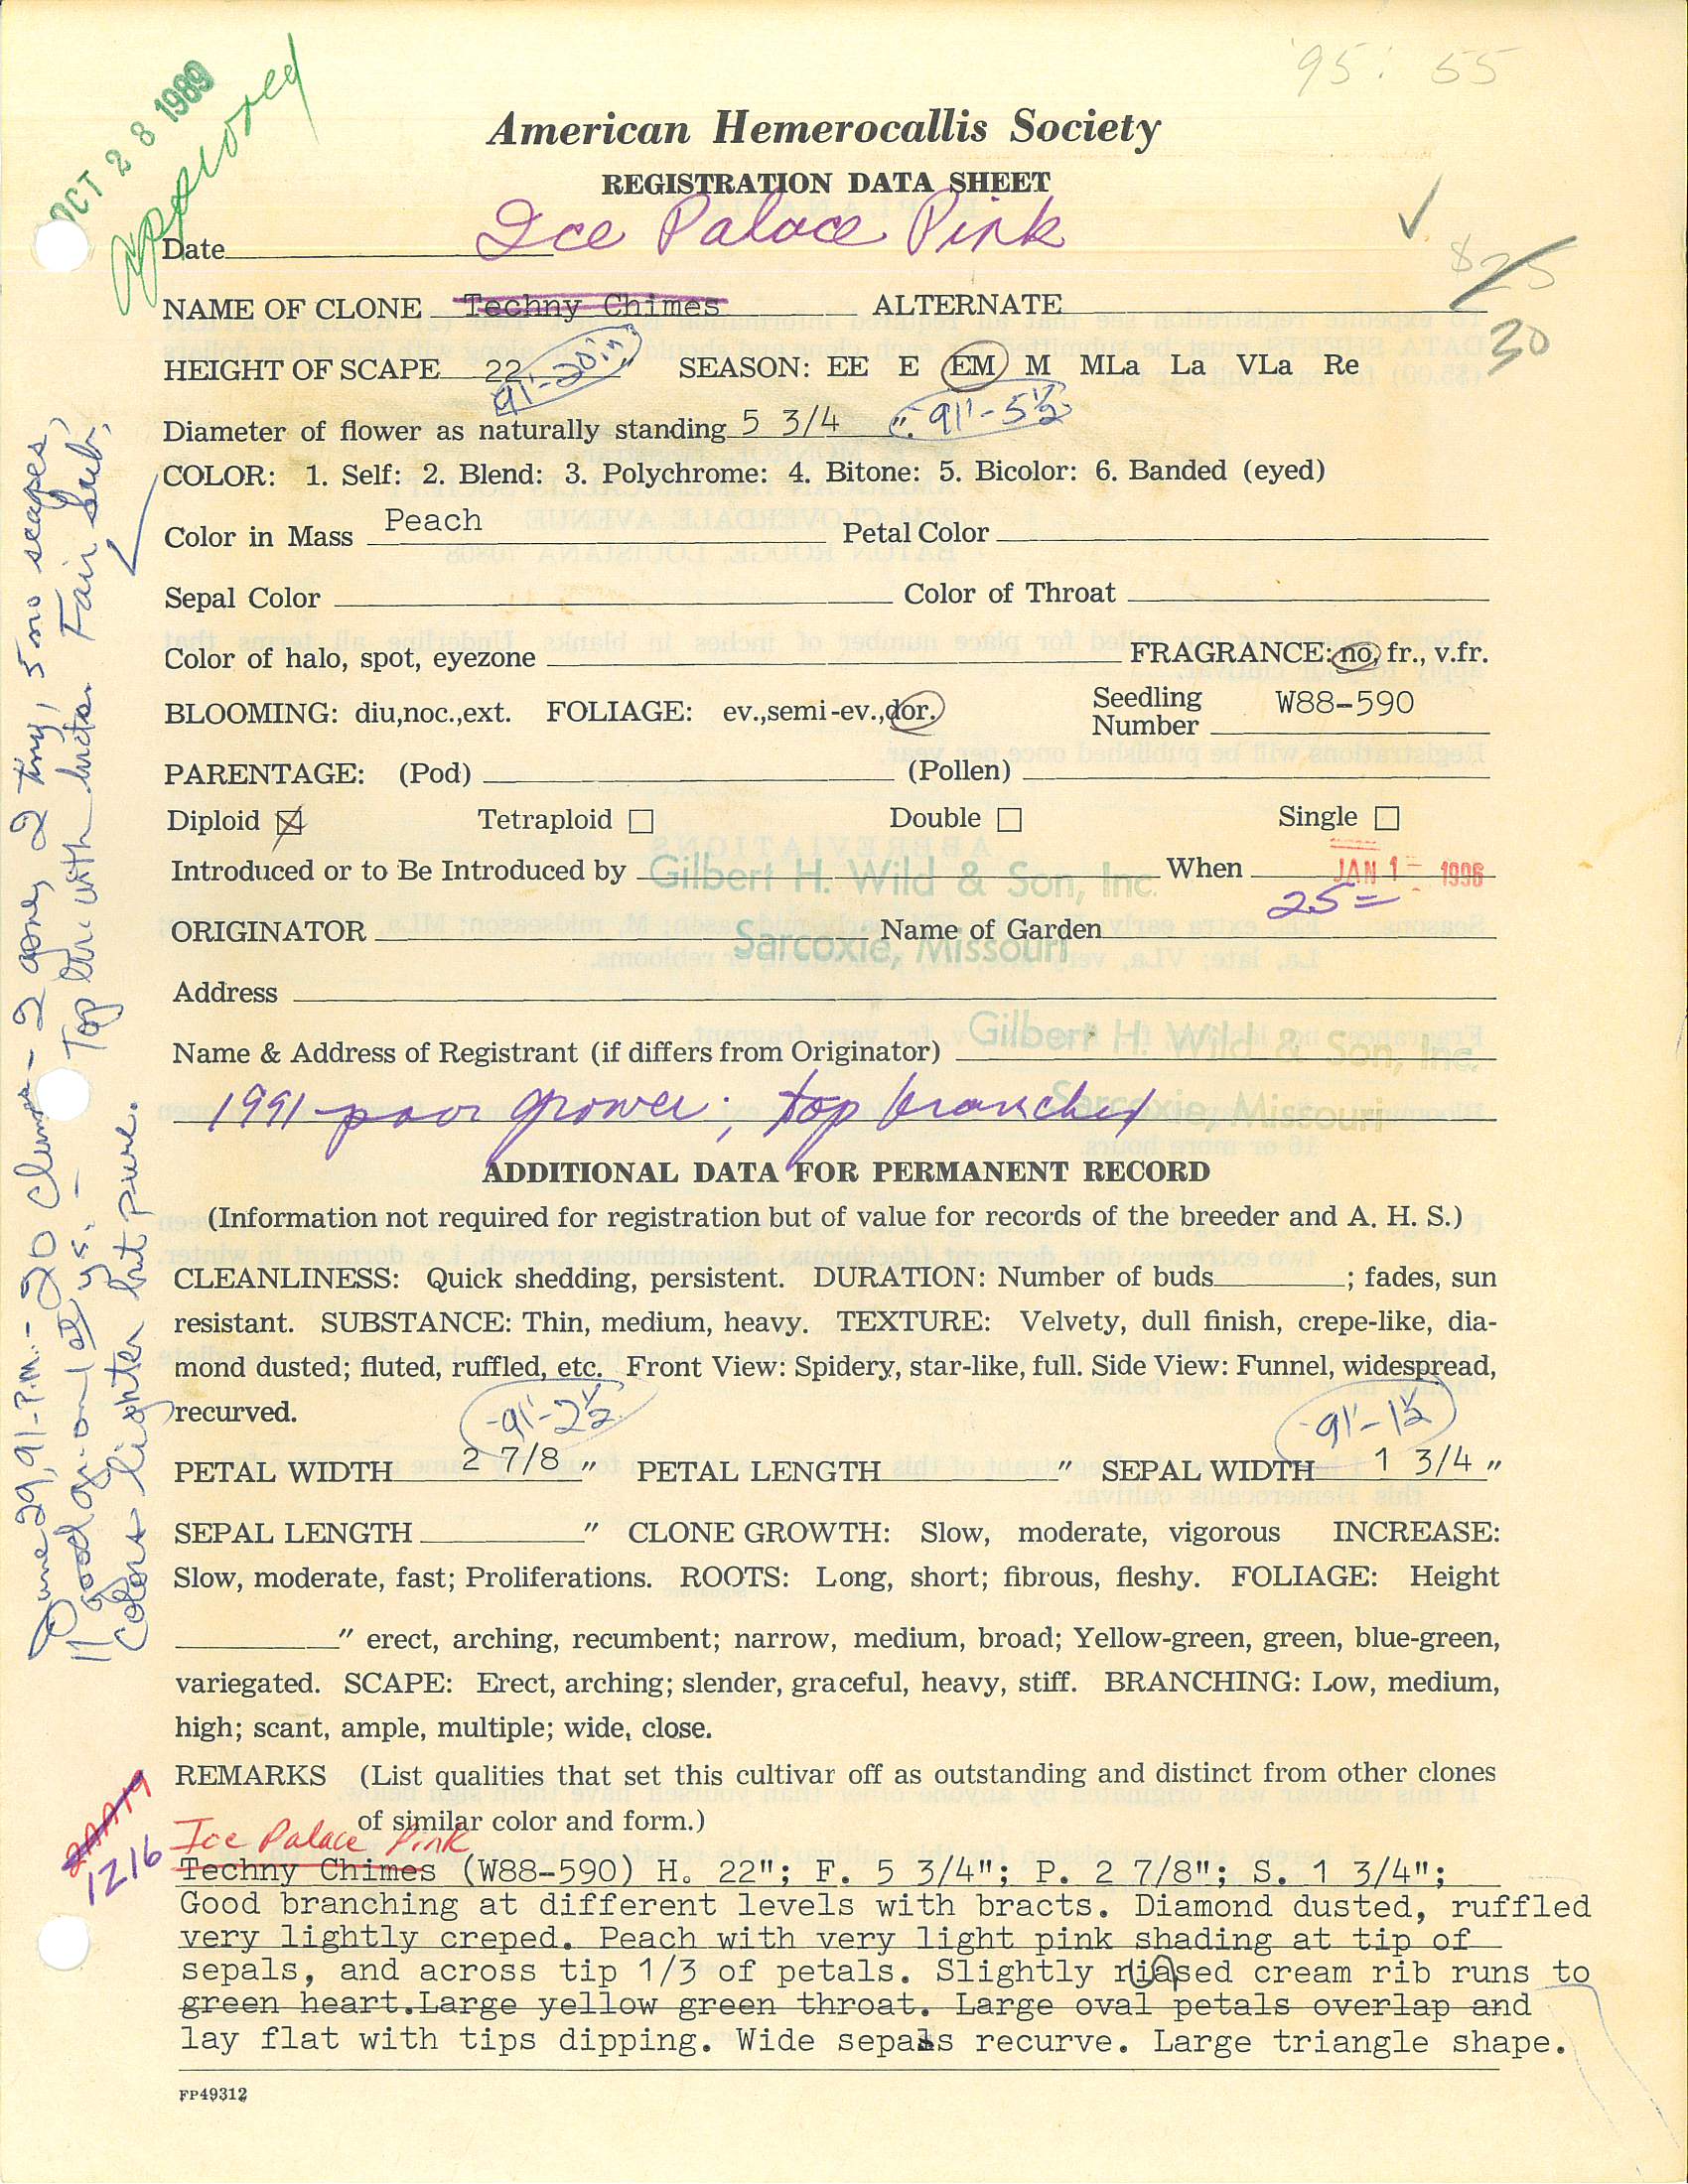 '95: 55
OCT 28 1989
approved
American Hemerocallis Society
REGISTRATION DATA SHEET
Date Ice Palace Pink
$25
30
NAME OF CLONE Techny Chimes ALTERNATE
HEIGHT OF SCAPE 22 91'-20in SEASON: EE E EM M MLa La VLa Re
Diameter of flower as naturally standing 5 3/4 ". 91'-5½
COLOR: 1. Self: 2. Blend: 3. Polychrome: 4. Bitone: 5. Bicolor: 6. Banded (eyed)
Color in Mass Peach Petal Color
Sepal Color Color of Throat
Color of halo, spot, eyezone FRAGRANCE: no, fr., v.fr.
BLOOMING: diu,noc.,ext. FOLIAGE: ev.,semi-ev.,dor. Seedling Number W88-590
PARENTAGE: (Pod) (Pollen)
Diploid Tetraploid Double Single
Introduced or to Be Introduced by Gilbert H. Wild & Son, Inc. When JAN 1 - 1996
25=
ORIGINATOR Sarcoxie, Missouri Name of Garden
Address
Name & Address of Registrant (if differs from Originator) Gilbert H. Wild & Son, Inc.
Sarcoxie, Missouri
1991-poor grower; top branched
ADDITIONAL DATA FOR PERMANENT RECORD
(Information not required for registration but of value for records of the breeder and A. H. S.)
CLEANLINESS: Quick shedding, persistent. DURATION: Number of buds ; fades, sun
resistant. SUBSTANCE: Thin, medium, heavy. TEXTURE: Velvety, dull finish, crepe-like, dia-
mond dusted; fluted, ruffled, etc. Front View: Spidery, star-like, full. Side View: Funnel, widespread,
recurved. -91'-2½ -91'-1½
PETAL WIDTH 2 7/8 " PETAL LENGTH " SEPAL WIDTH 1 3/4 "
SEPAL LENGTH " CLONE GROWTH: Slow, moderate, vigorous INCREASE:
Slow, moderate, fast; Proliferations. ROOTS: Long, short; fibrous, fleshy. FOLIAGE: Height
" erect, arching, recumbent; narrow, medium, broad; Yellow-green, green, blue-green,
variegated. SCAPE: Erect, arching; slender, graceful, heavy, stiff. BRANCHING: Low, medium,
high; scant, ample, multiple; wide, close.
REMARKS (List qualities that set this cultivar off as outstanding and distinct from other clones
of similar color and form.)
1216
Ice Palace Pink
Techny Chimes (W88-590) H. 22"; F. 5 3/4"; P. 2 7/8"; S. 1 3/4";
Good branching at different levels with bracts. Diamond dusted, ruffled
very lightly creped. Peach with very light pink shading at tip of
sepals, and across tip 1/3 of petals. Slightly riased cream rib runs to
green heart.Large yellow green throat. Large oval petals overlap and
lay flat with tips dipping. Wide sepals recurve. Large triangle shape.
FP49312
June 29, 91-P.M.-20 clumps- 2 gone, 2 tiny, 5 no scapes,
11 good gr. on 1 ys. - Top br. with bracts. Fair Sub.
Color lighter but pure.